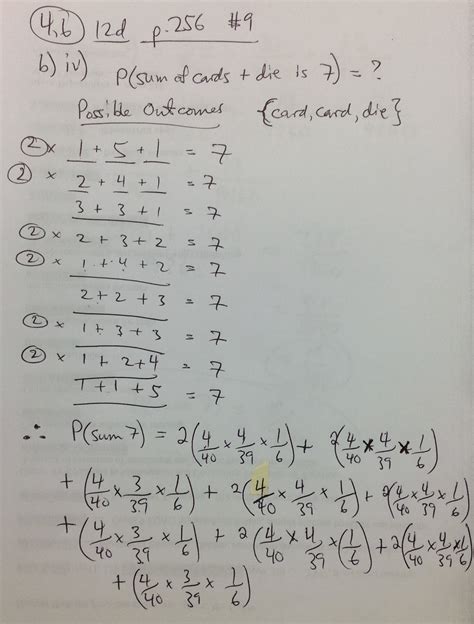 4.6) 12d p.256 #9
b) iv) P(sum of cards + die is 7) = ?
Possible Outcomes {card, card, die}
2 × 1 + 5 + 1 = 7
2 × 2 + 4 + 1 = 7
3 + 3 + 1 = 7
2 × 2 + 3 + 2 = 7
2 × 1 + 4 + 2 = 7
2 + 2 + 3 = 7
2 × 1 + 3 + 3 = 7
2 × 1 + 2 + 4 = 7
1 + 1 + 5 = 7
∴ P(sum 7) = 2(4/40 × 4/39 × 1/6) + 2(4/40 × 4/39 × 1/6)
+ (4/40 × 3/39 × 1/6) + 2(4/40 × 4/39 × 1/6) + 2(4/40 × 4/39 × 1/6)
+ (4/40 × 3/39 × 1/6) + 2(4/40 × 4/39 × 1/6) + 2(4/40 × 4/39 × 1/6)
+ (4/40 × 3/39 × 1/6)